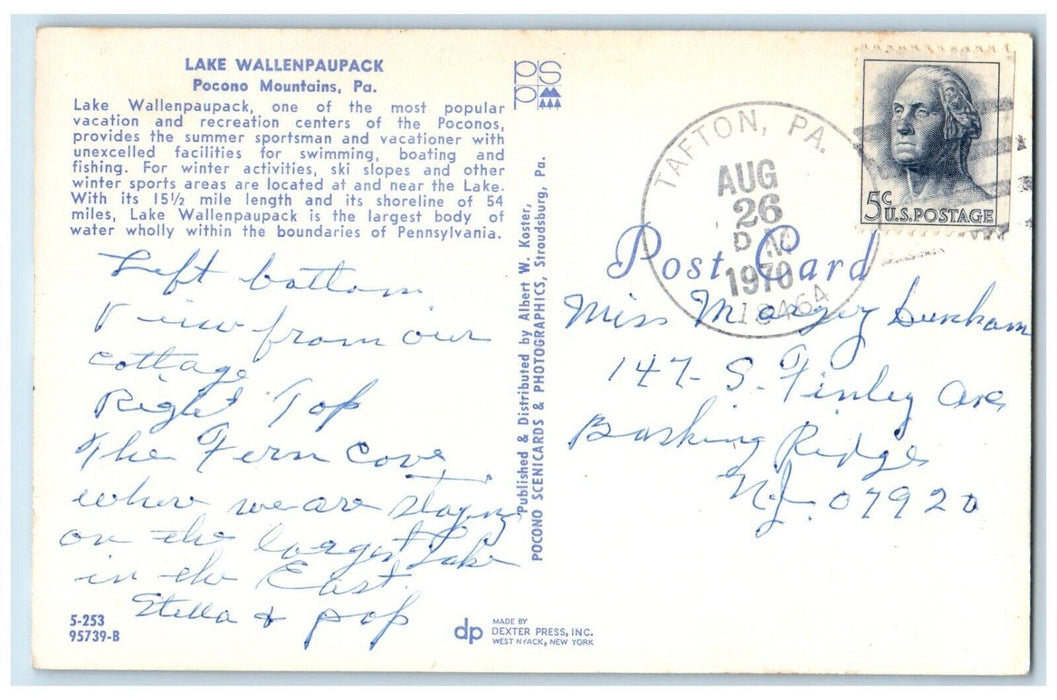 LAKE WALLENPAUPACK
Pocono Mountains, Pa.
Lake Wallenpaupack, one of the most popular
vacation and recreation centers of the Poconos,
provides the summer sportsman and vacationer with
unexcelled facilities for swimming, boating and
fishing. For winter activities, ski slopes and other
winter sports areas are located at and near the Lake.
With its 15½ mile length and its shoreline of 54
miles, Lake Wallenpaupack is the largest body of
water wholly within the boundaries of Pennsylvania.
Left bottom
View from our
cottage
Right Top
The Fern Cove
where we are staying
on the largest Lake
in the East.
Stella & Pop
5-253
95739-B
dp
MADE BY
DEXTER PRESS, INC.
WEST NYACK, NEW YORK
Published & Distributed by Albert W. Koster,
POCONO SCENICARDS & PHOTOGRAPHICS, Stroudsburg, Pa.
PS
PP
TAFTON, PA.
AUG
26
PM
1970
18464
5c U.S. POSTAGE
Post Card
Miss Margey Dunham
147- S. Finley Ave
Basking Ridge
N.J. 07920